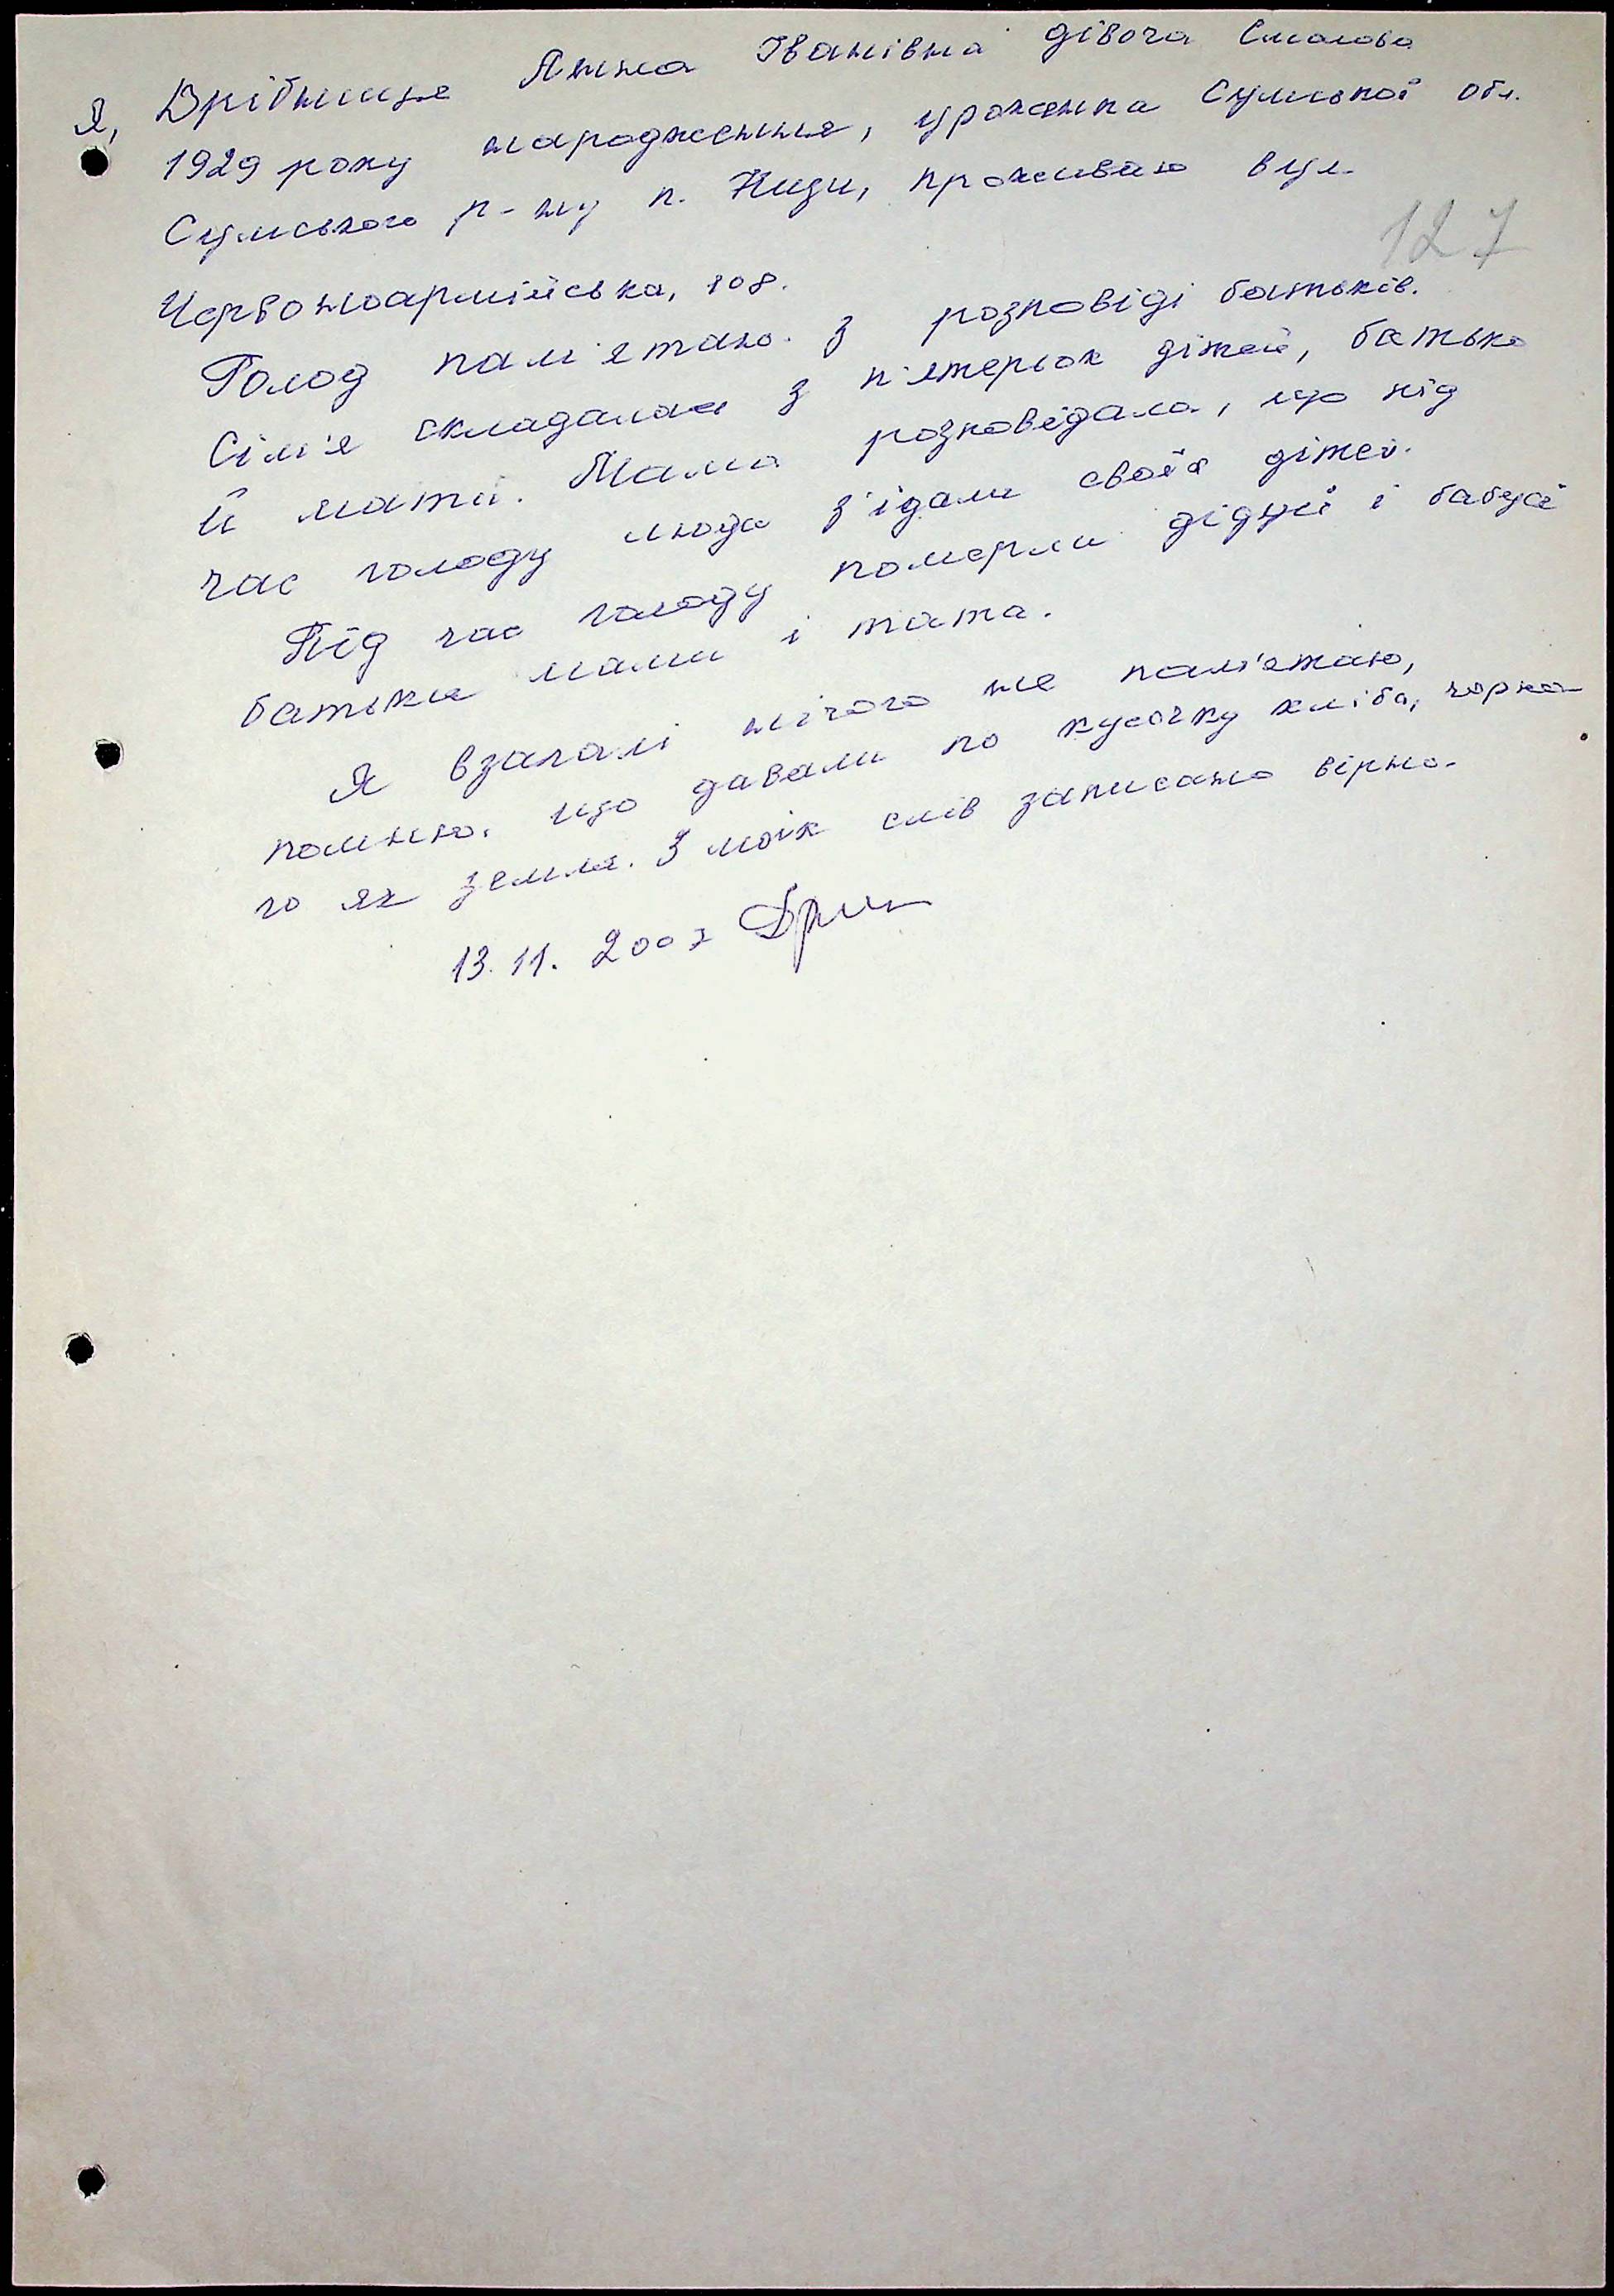 Я, Дрібниця Анна Іванівна дівоча Смалова
1929 року народження, уроженка Сумської обл.
Сумського р-ну п. Низи, проживаю вул.
127
Червоноармійська, 108.
Голод пам'ятаю. З розповіді батьків.
Сім'я складалася з п'ятерьох дітей, батько
й мати. Мама розповідала, що під
час голоду люди з'їдали своїх дітей.
Під час голоду померли дідусі і бабусі
батьки мами і тата.
Я взагалі нічого не пам'ятаю,
помню, що давали по кусочку хліба, чорно-
го як земля. З моїх слів записано вірно.
13.11.2007